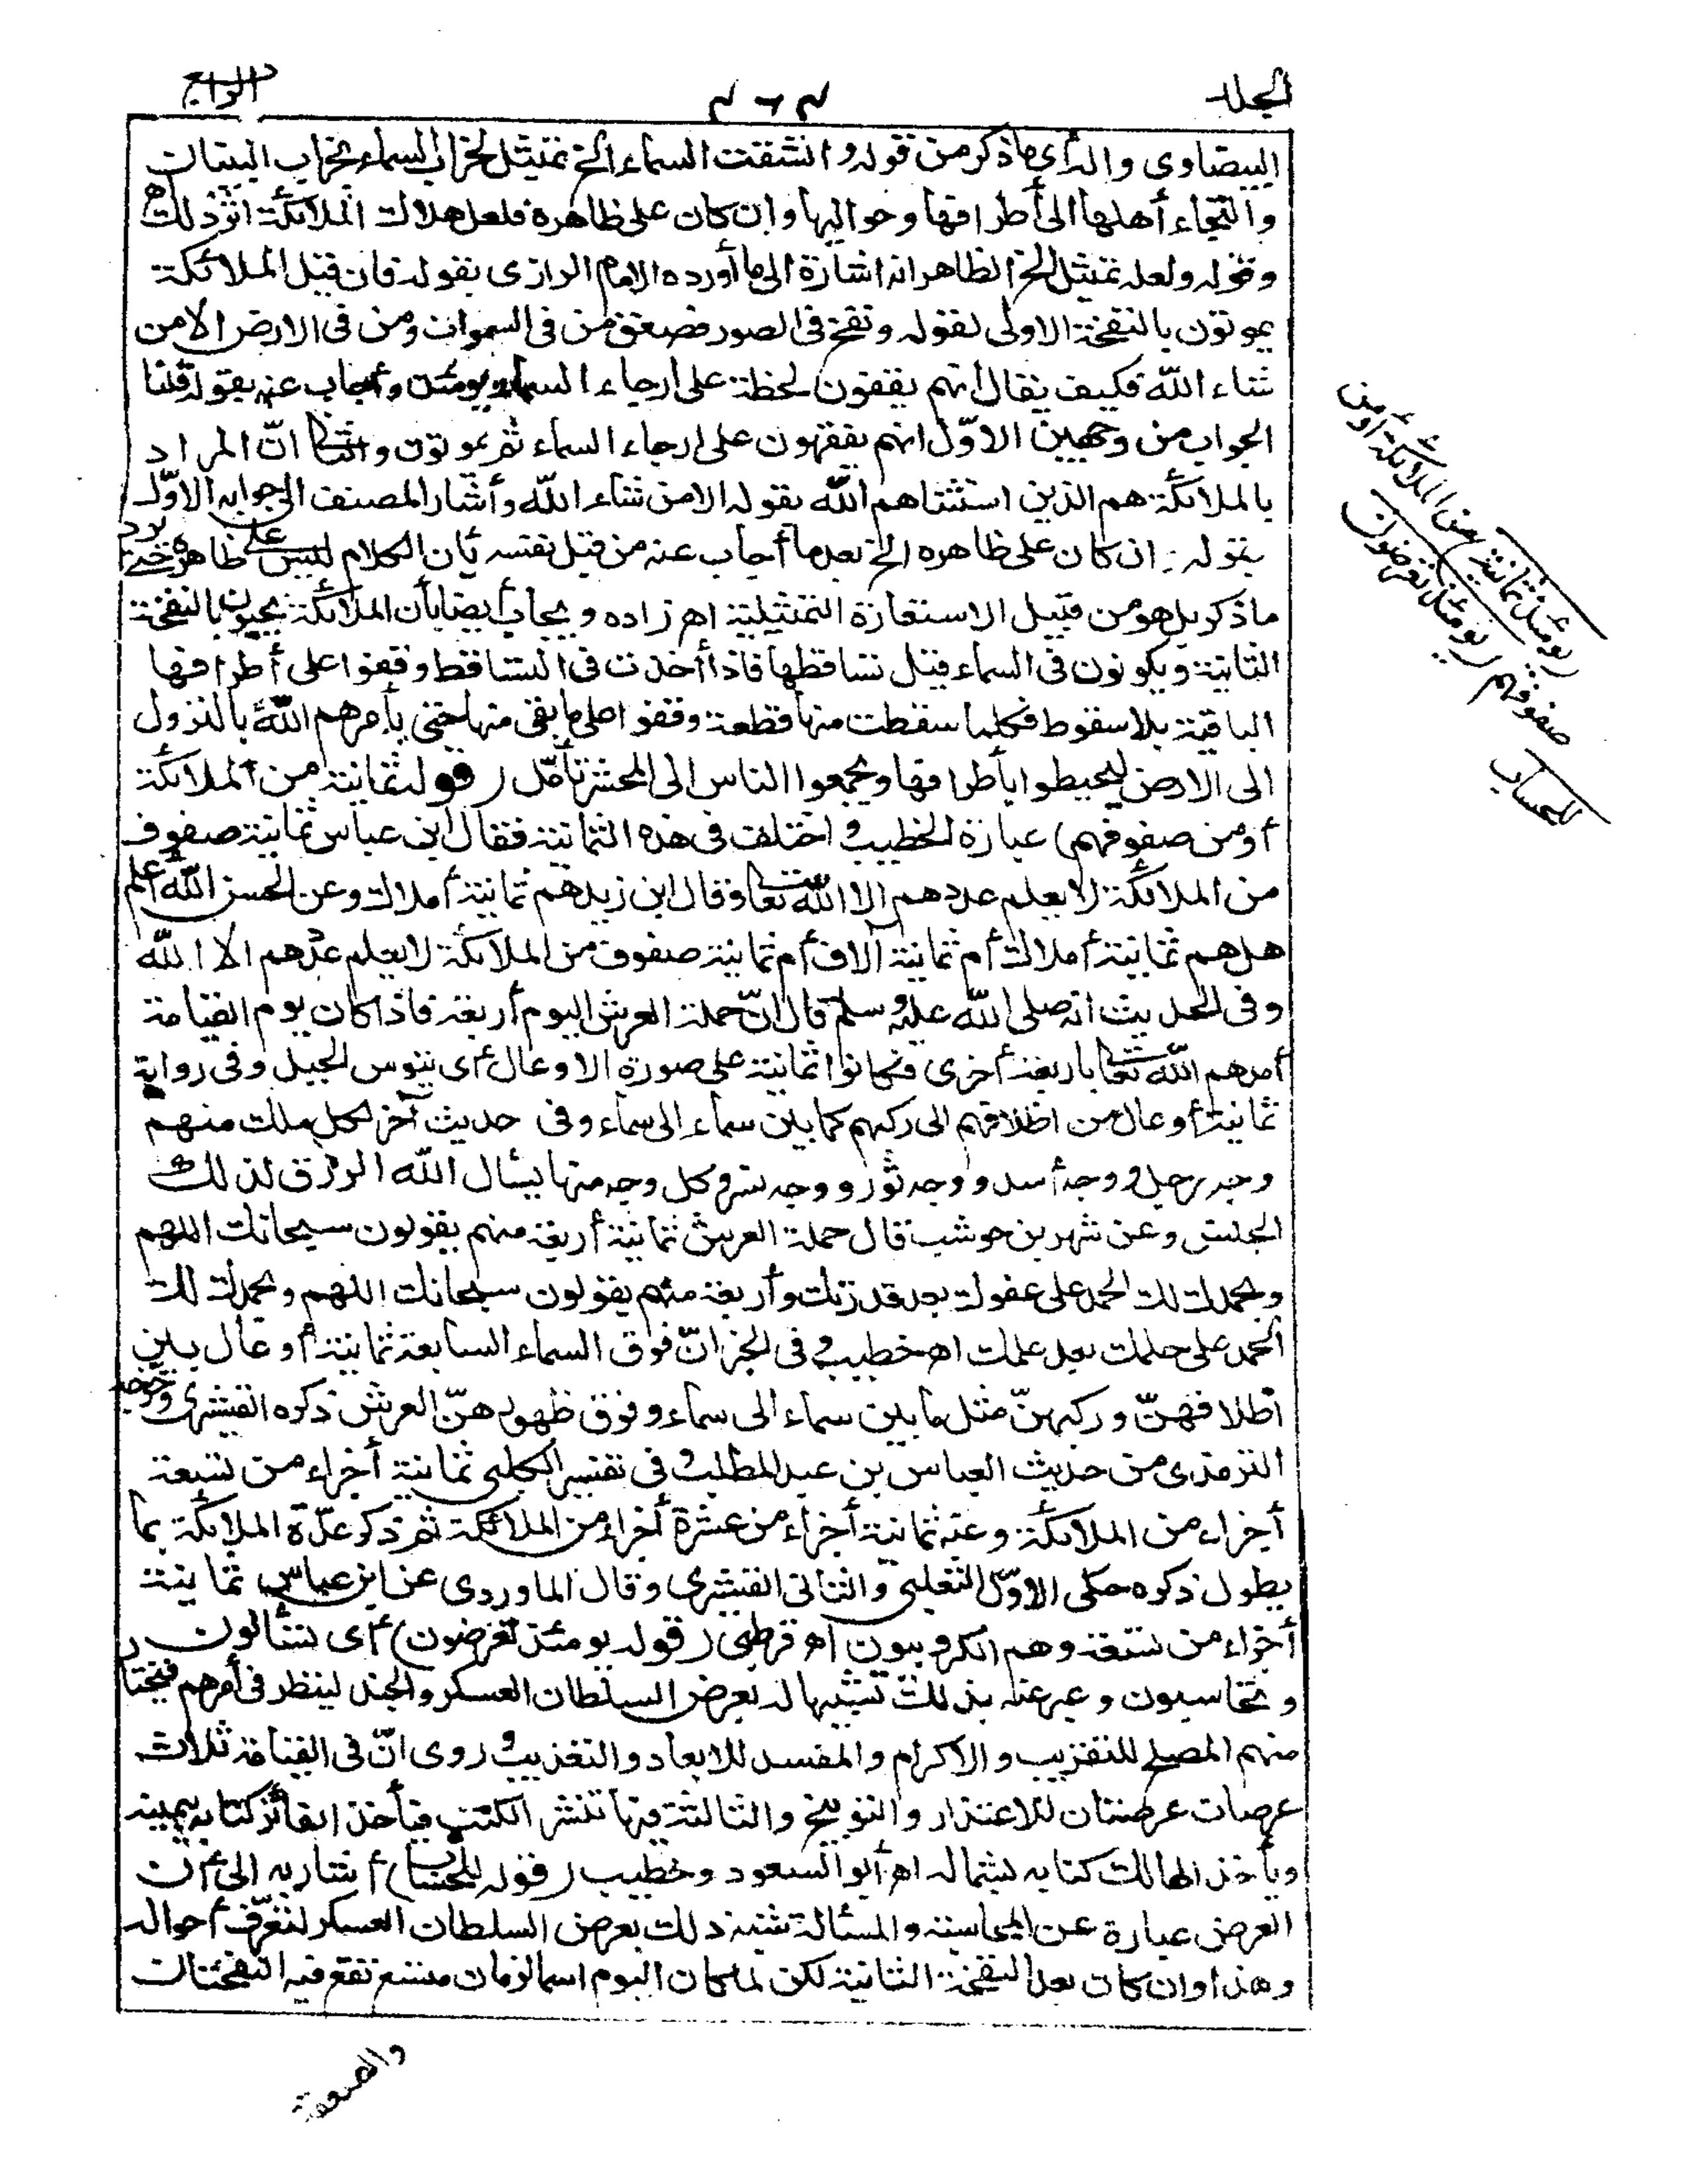 المجلد
الرابع
البيضاوى والرأى ماذكر من قوله وانشقت السماء الخ تمثيل لخراب السماء بخراب البنيان
والتجاء أهلها الى أطرافها وحواليها وان كان على ظاهره فلعل هلاك الملائكة اثر ذلك اه
وقوله ولعله تمثيل الخ الظاهر انه اشارة الى ما أورده الامام الرازى بقوله فان قيل الملائكة
يموتون بالنفخة الاولى لقوله ونفخ فى الصور فصعق من فى السموات ومن فى الارض الا من
شاء الله فكيف يقال انهم يقفون لحظة على ارجاء السماء يومئذ وأجاب عنه بقوله قلنا
الجواب من وجهين الاوّل انهم يقفون على ارجاء السماء ثم يموتون والثانى انّ المراد
بالملائكة هم الذين استثناهم الله بقوله الا من شاء الله وأشار المصنف الى جوابه الاوّل
بقوله ان كان على ظاهره الخ بعد ما أجاب عنه من قبل نفسه بأن الكلام ليس على ظاهره حتى يرد
ماذكر بل هو من قبيل الاستعارة التمثيلية اه زاده ويجاب أيضا بأن الملائكة يحيون بالنفخة
الثانية ويكونون فى السماء قبل تساقطها فاذا أخذت فى التساقط وقفوا على أطرافها
الباقية بلا سقوط فكلما سقطت منها قطعة وقفوا على ما بقى منها حتى يأمرهم الله بالنزول
الى الارض ليحيطوا بأطرافها ويجمعوا الناس الى المحشر تأمّل (قوله ثمانية من الملائكة
أو من صفوفهم) عبارة الخطيب واختلف فى هذه الثمانية فقال ابن عباس ثمانية صفوف
من الملائكة لا يعلم عددهم الا الله تعالى وقال ابن زيد هم ثمانية أملاك وعن الحسن الله أعلم
هل هم ثمانية أملاك أم ثمانية آلاف أم ثمانية صفوف من الملائكة لا يعلم عددهم الا الله
وفى الحديث انه صلى الله عليه وسلم قال انّ حملة العرش اليوم أربعة فاذا كان يوم القيامة
أمدهم الله تعالى بأربعة أخرى فكانوا ثمانية على صورة الاوعال أى تيوس الجبل وفى رواية
ثمانية أوعال من اظلافهم الى ركبهم كما بين سماء الى سماء وفى حديث آخر لكل ملك منهم
وجه رجل ووجه أسد ووجه ثور ووجه نسر وكل وجه منها يسأل الله الرزق لذلك
الجنس وعن شهر بن حوشب قال حملة العرش ثمانية أربعة منهم يقولون سبحانك اللهم
وبحمدك لك الحمد على عفوك بعد قدرتك وأربعة منهم يقولون سبحانك اللهم وبحمدك لك
الحمد على حلمك بعد علمك اه خطيب وفى الخبر انّ فوق السماء السابعة ثمانية أوعال بين
أظلافهنّ وركبهنّ مثل ما بين سماء الى سماء وفوق ظهورهنّ العرش ذكره القشيرى وخرجه
الترمذى من حديث العباس بن عبد المطلب وفى تفسير الكلبى ثمانية أجزاء من تسعة
أجزاء من الملائكة وعنه ثمانية أجزاء من عشرة أجزاء من الملائكة ثم ذكر عدّة الملائكة بما
يطول ذكره حكى الاوّل الثعلبى والثانى القشيرى وقال الماوردى عن ابن عباس ثمانية
أجزاء من تسعة وهم الكروبيون اه قرطبى (قوله يومئذ تعرضون) أى تسألون
وتحاسبون وعبر عنه بذلك تشبيها له بعرض السلطان العسكر والجند لينظر فى أمرهم فيختار
منهم المصلح للتقريب والاكرام والمفسد للابعاد والتعذيب وروى انّ فى القيامة ثلاث
عرضات عرضتان للاعتذار والتوبيخ والثالثة فيها تنشر الكتب فيأخذ الفائز كتابه بيمينه
ويأخذ الهالك كتابه بشماله اه أبو السعود وخطيب (قوله للحساب) أشار به الى أن
العرض عبارة عن المحاسبة والمسألة شبه ذلك بعرض السلطان العسكر لتعرّف أحواله
وهذا وان كان بعد النفخة الثانية لكن لما كان اليوم اسما لزمان متسع تقع فيه النفختان
يومئذ ثمانية من الملائكة أو من
صفوفهم يومئذ تعرضون
للحساب
والصعقة